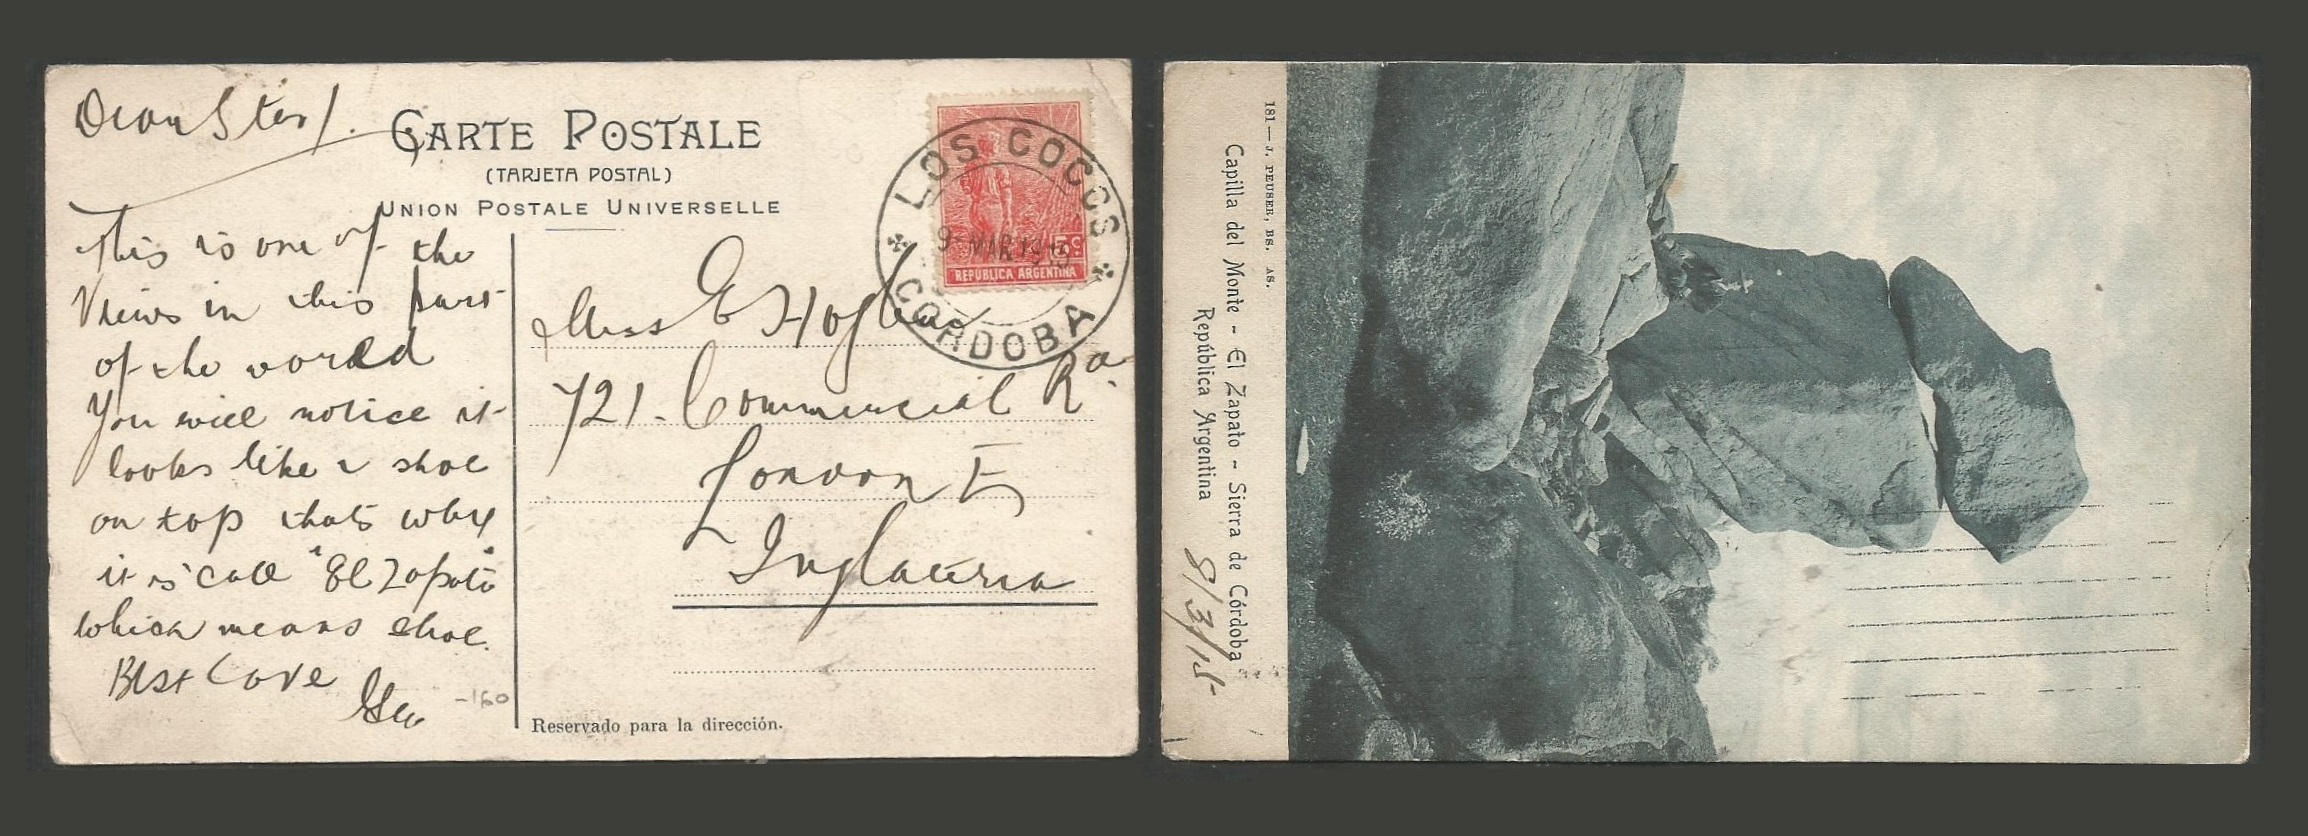 Dear
CARTE POSTALE
(TARJETA POSTAL)
UNION POSTALE UNIVERSELLE
This is one of the
Views in this part
of the world
You will notice it
looks like a shoe
on top thats why
it is call "El Zapato"
which means shoe.
Best Love
LOS COCOS
9 MAR 191
5c
REPUBLICA ARGENTINA
CORDOBA
Miss E
721. Commercial Rd.
London E
Inglaterra
Reservado para la dirección.
-160
181 — J. PEUSER, BS. AS.
Capilla del Monte - El Zapato - Sierra de Córdoba
República Argentina
8/3/15